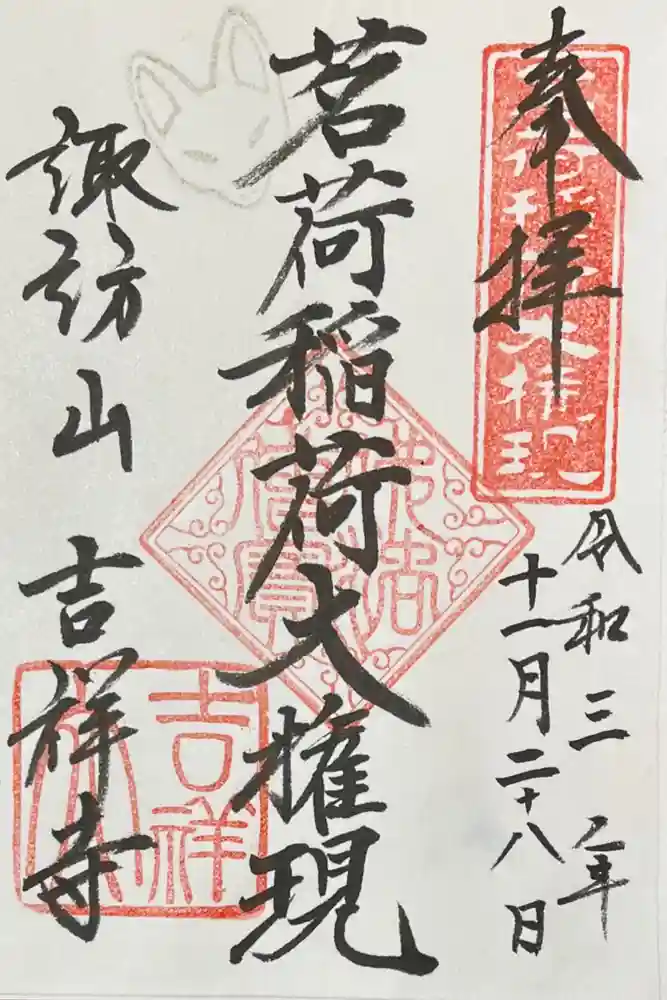 奉拝
令和三年
十一月二十八日
茗荷稲荷大権現
諏訪山 吉祥寺
吉祥